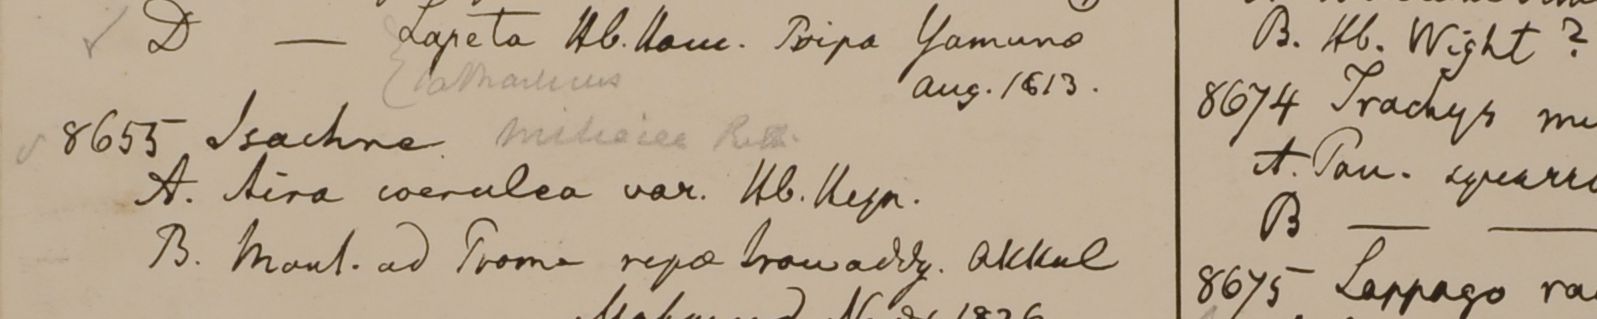 D — Lapeta Hb. Ham. Ripa Yamuna
Aug. 1813.
8655 Isachne miliacea Roth.
A. Aira coerulea var. Hb. Heyn.
B. Mont. ad Prome ripa Irawaddy. Akkul
1826
B. Hb. Wight?
8674 Trachys
A. Pan.
B — —
8675 Lappago